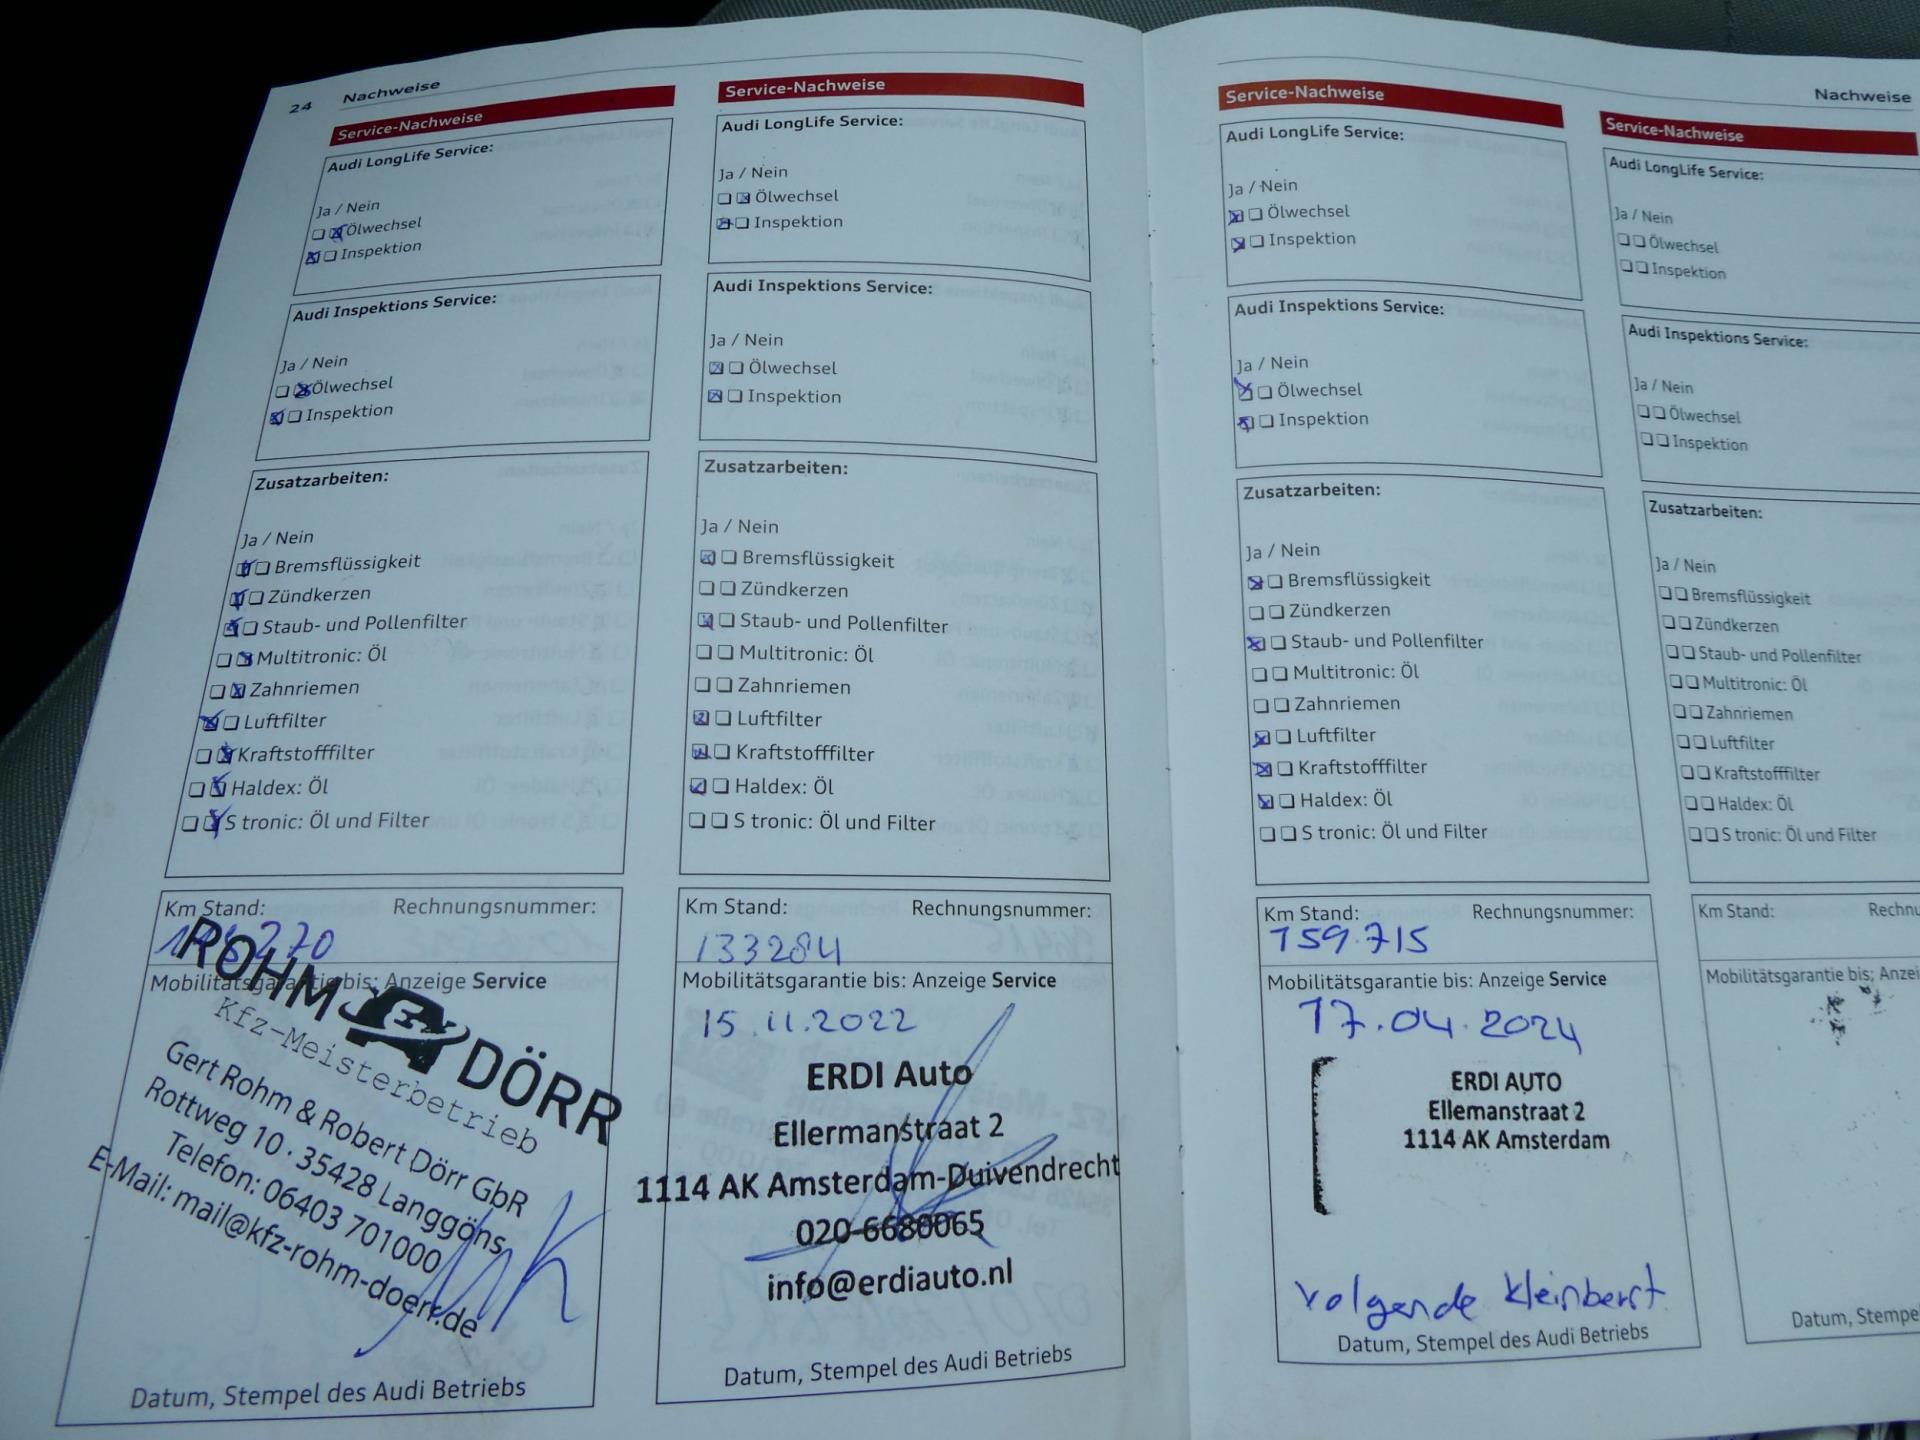 24 Nachweise
Service-Nachweise
Audi LongLife Service:
Ja / Nein
Ölwechsel
Inspektion
Audi Inspektions Service:
Ja / Nein
Ölwechsel
Inspektion
Zusatzarbeiten:
Ja / Nein
Bremsflüssigkeit
Zündkerzen
Staub- und Pollenfilter
Multitronic: Öl
Zahnriemen
Luftfilter
Kraftstofffilter
Haldex: Öl
S tronic: Öl und Filter
Km Stand: Rechnungsnummer:
Mobilitätsgarantie bis: Anzeige Service
ROHM & DÖRR
Kfz-Meisterbetrieb
Gert Rohm & Robert Dörr GbR
Rottweg 10 · 35428 Langgöns
Telefon: 06403 701000
E-Mail: mail@kfz-rohm-doerr.de
Datum, Stempel des Audi Betriebs
Service-Nachweise
Audi LongLife Service:
Ja / Nein
Ölwechsel
Inspektion
Audi Inspektions Service:
Ja / Nein
Ölwechsel
Inspektion
Zusatzarbeiten:
Ja / Nein
Bremsflüssigkeit
Zündkerzen
Staub- und Pollenfilter
Multitronic: Öl
Zahnriemen
Luftfilter
Kraftstofffilter
Haldex: Öl
S tronic: Öl und Filter
Km Stand: Rechnungsnummer:
133284
Mobilitätsgarantie bis: Anzeige Service
15.11.2022
ERDI Auto
Ellermanstraat 2
1114 AK Amsterdam-Duivendrecht
020-6680065
info@erdiauto.nl
Datum, Stempel des Audi Betriebs
Nachweise
Service-Nachweise
Audi LongLife Service:
Ja / Nein
Ölwechsel
Inspektion
Audi Inspektions Service:
Ja / Nein
Ölwechsel
Inspektion
Zusatzarbeiten:
Ja / Nein
Bremsflüssigkeit
Zündkerzen
Staub- und Pollenfilter
Multitronic: Öl
Zahnriemen
Luftfilter
Kraftstofffilter
Haldex: Öl
S tronic: Öl und Filter
Km Stand: Rechnungsnummer:
159.715
Mobilitätsgarantie bis: Anzeige Service
17.04.2024
ERDI AUTO
Ellemanstraat 2
1114 AK Amsterdam
volgende kleinberst
Datum, Stempel des Audi Betriebs
Service-Nachweise
Audi LongLife Service:
Ja / Nein
Ölwechsel
Inspektion
Audi Inspektions Service:
Ja / Nein
Ölwechsel
Inspektion
Zusatzarbeiten:
Ja / Nein
Bremsflüssigkeit
Zündkerzen
Staub- und Pollenfilter
Multitronic: Öl
Zahnriemen
Luftfilter
Kraftstofffilter
Haldex: Öl
S tronic: Öl und Filter
Km Stand: Rechnu
Mobilitätsgarantie bis: Anzei
Datum, Stempe